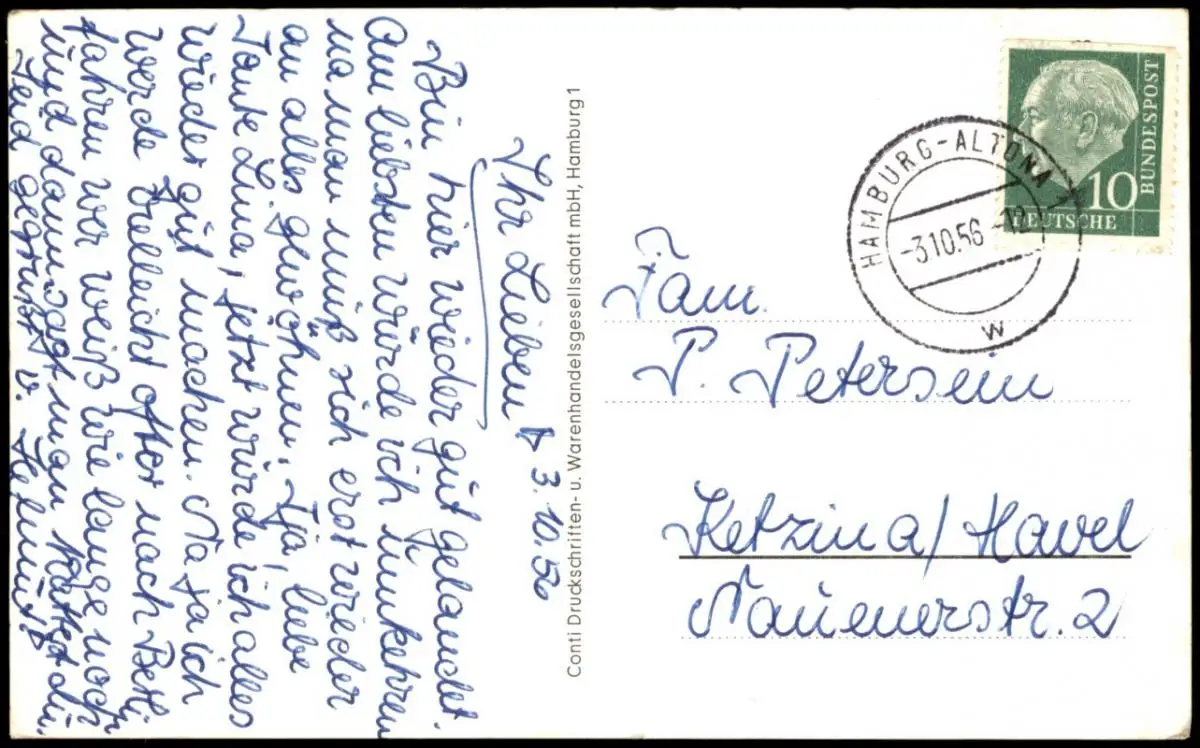 Ihr Lieben
3.10.56
Bin hier wieder gut gelandet.
Am liebsten würde ich umkehren
na man muß sich erst wieder
an alles gewöhnen. Tja, liebe
Tante Lina, jetzt würde ich alles
wieder gut machen. Na ja ich
werde vielleicht öfter nach Berli.
fahren wer weiß wie lange noch
und dann sagt man hättest du.
Seid gegrüßt v. Helmut
Conti Druckschriften- u. Warenhandelsgesellschaft mbH, Hamburg 1
HAMBURG-ALTONA 1
-3.10.56 -12
w
10
DEUTSCHE
BUNDESPOST
Fam.
P. Petersein
Ketzin a/Havel
Nauenerstr. 2